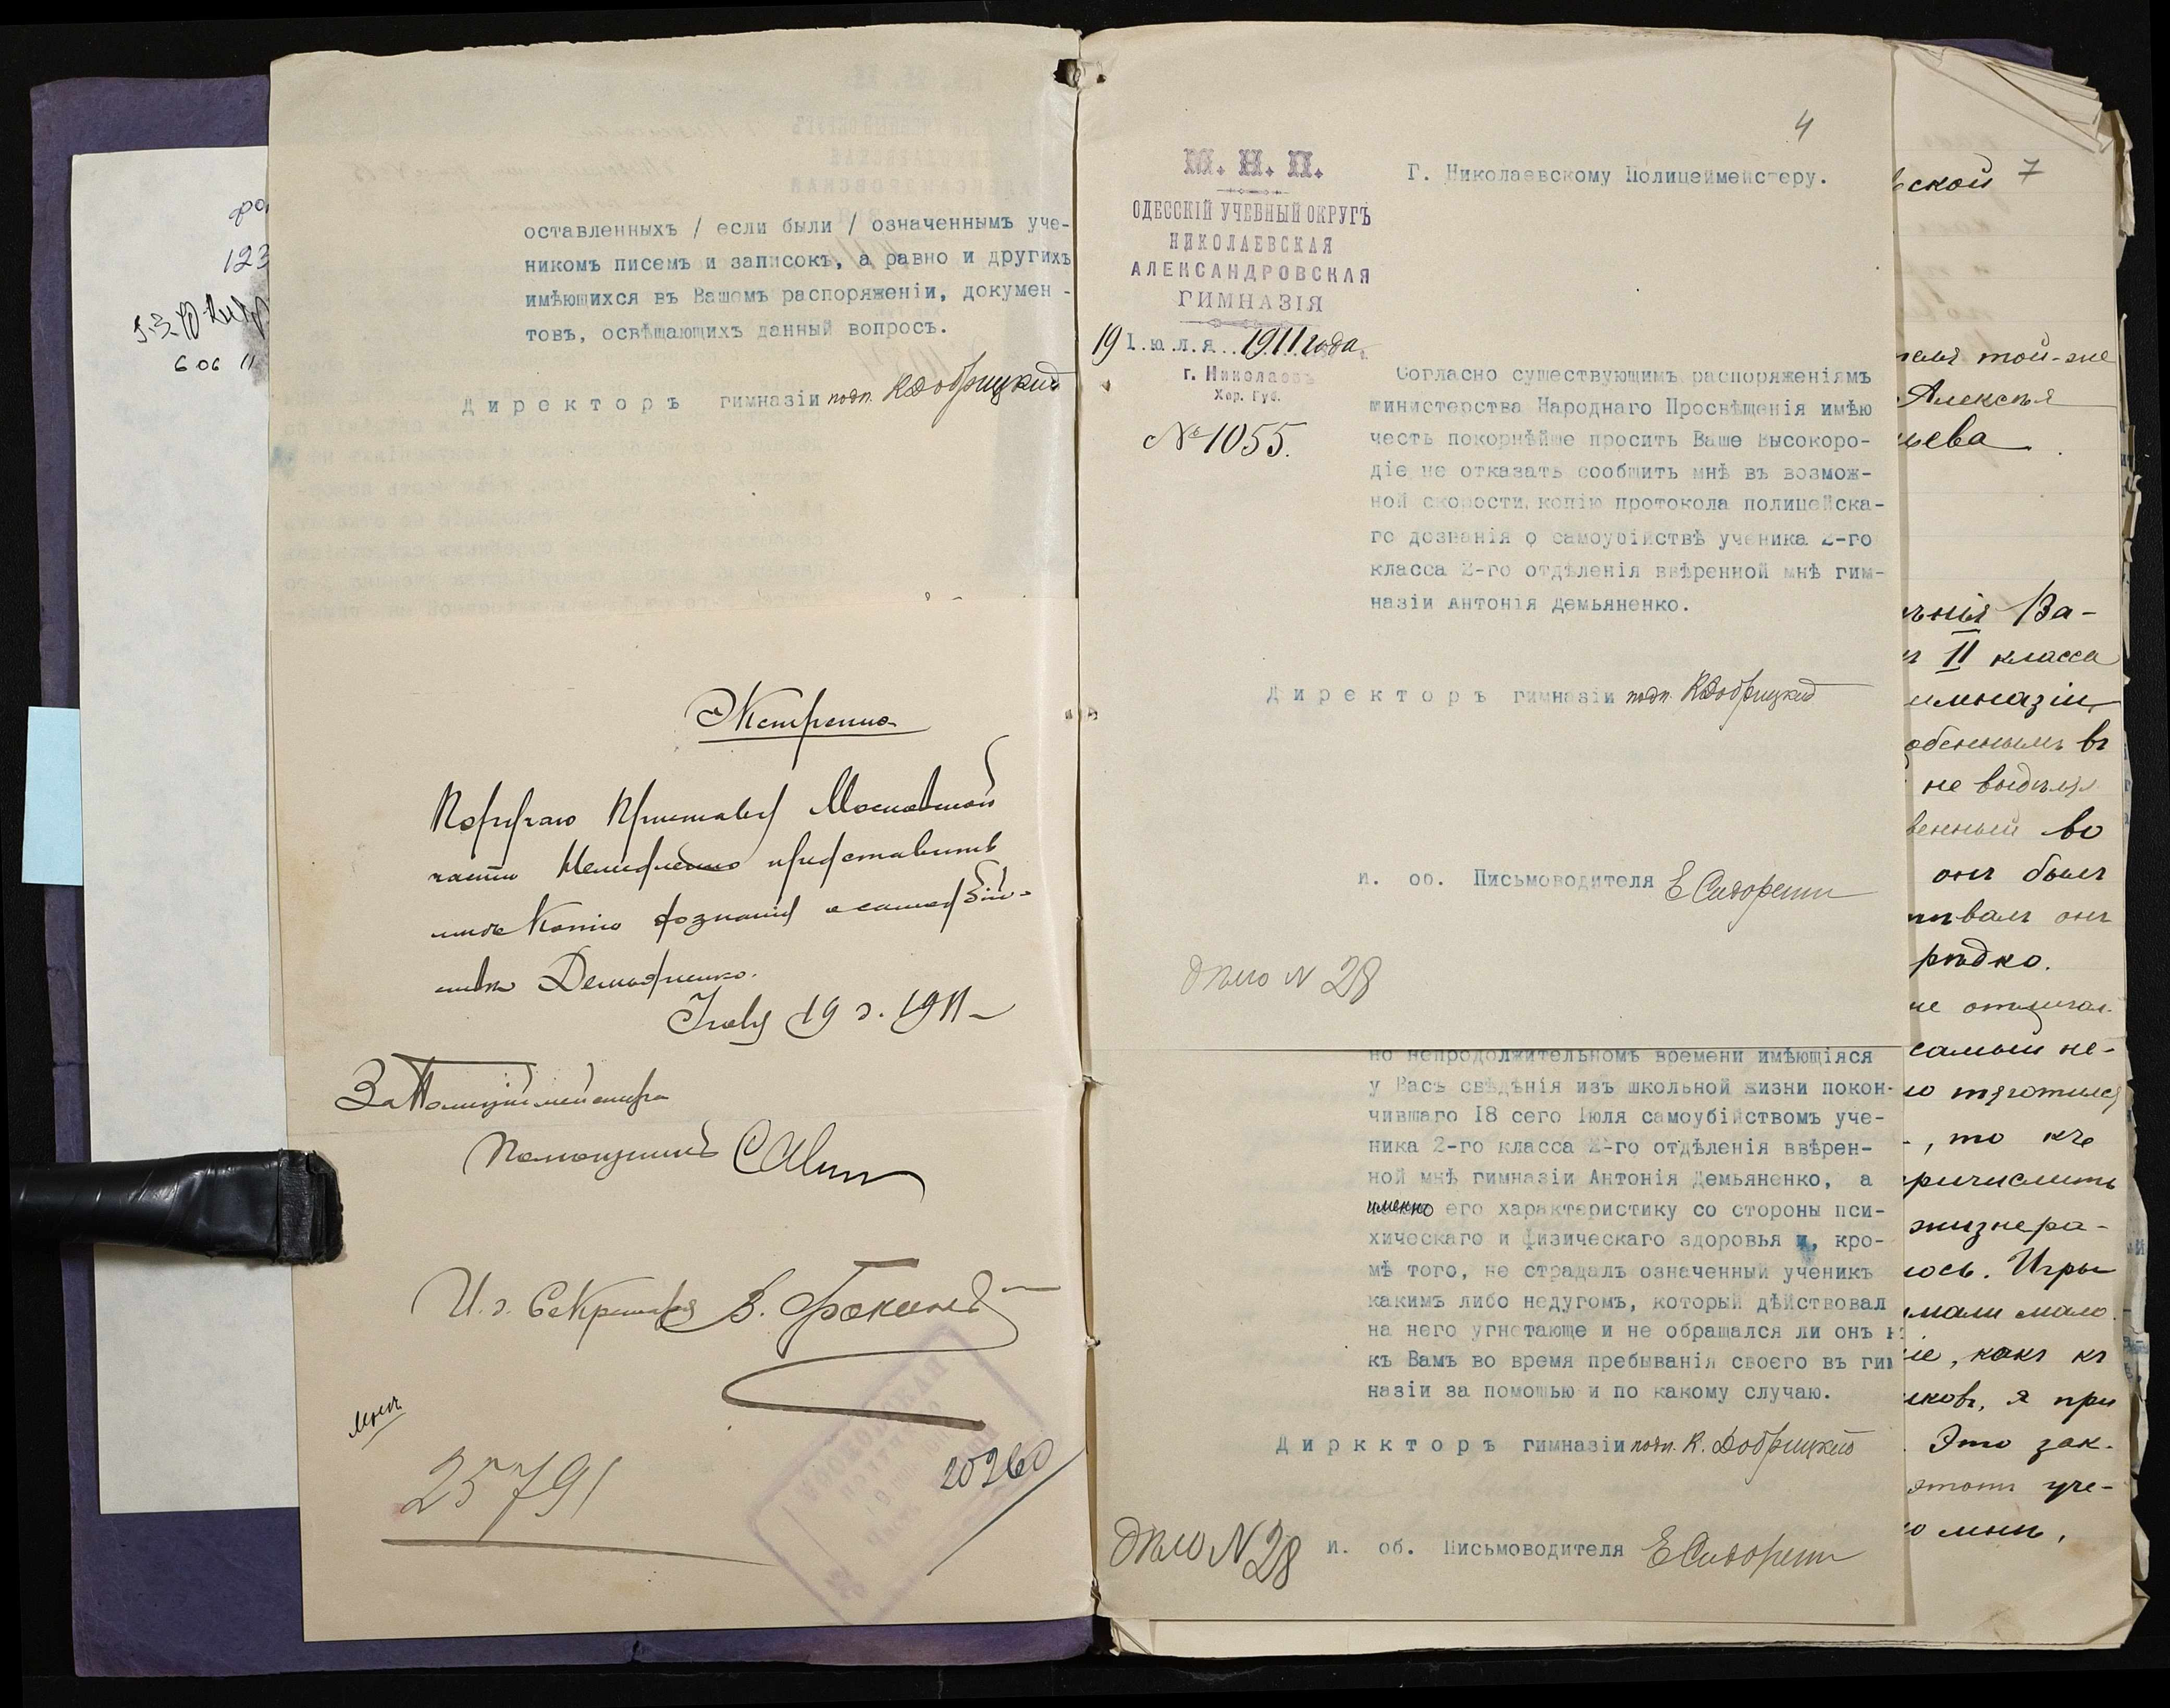 123
606 11
оставленныхъ / если были / означеннымъ уче-
никомъ писемъ и записокъ, а равно и другихъ
имѣющихся въ Вашемъ распоряженіи, докумен -
товъ, освѣщающихъ данный вопросъ.
Директоръ гимназіи подп. К Добрицкий
Экстренно
Поручаю Приставу Московской
части Немедленно представить
мнѣ Копію дознанія о самоубій-
ствѣ Демьяненко.
Іюля 19 д. 1911
За Полиціймейстера
Помощникъ
И. д. Секретаря В. Фокинъ
25791
20260
4
М. Н. П.
ОДЕССКІЙ УЧЕБНЫЙ ОКРУГЪ
НИКОЛАЕВСКАЯ
АЛЕКСАНДРОВСКАЯ
ГИМНАЗІЯ
19 Іюля 1911 года
г. Николаевъ
Хер. Губ.
№ 1055.
Г. Николаевскому Полицеймейстеру.
Согласно существующимъ распоряженіямъ
министерства Народнаго Просвѣщенія имѣю
честь покорнѣйше просить Ваше Высокоро-
діе не отказать сообщить мнѣ въ возмож-
ной скорости копію протокола полицейска-
го дознанія о самоубійствѣ ученика 2-го
класса 2-го отдѣленія ввѣренной мнѣ гим-
назіи Антонія Демьяненко.
Директоръ гимназіи подп. К Добрицкий
и. об. Письмоводителя Е Сидоренко
дѣло N 28
по непродолжительномъ времени имѣющіяся
у Васъ свѣдѣнія изъ школьной жизни покон-
чившаго 18 сего Іюля самоубійствомъ уче-
ника 2-го класса 2-го отдѣленія ввѣрен-
ной мнѣ гимназіи Антонія Демьяненко, а
именно его характеристику со стороны пси-
хическаго и физическаго здоровья и, кро-
мѣ того, не страдалъ означенный ученикъ
какимъ либо недугомъ, который дѣйствовал
на него угнетающе и не обращался ли онъ
къ Вамъ во время пребыванія своего въ гим
назіи за помощью и по какому случаю.
Диркктор ъ гимназіи подп. К. Добрицкий
дѣло N 28 и. об. Письмоводителя Е Сидоренко
ской 7
той-же
Алексѣя
ьева
нія Ва-
II класса
имназіи
обеннымъ въ
не выдѣлял
венный во
онъ былъ
валъ онъ
рѣдко.
не отличал-
самый не-
тяготился
, то къ
причислить
жизнера-
лось. Игры
мали мало
іе, какъ къ
иковъ, я при
Это зак-
этотъ уче-
мнѣ,